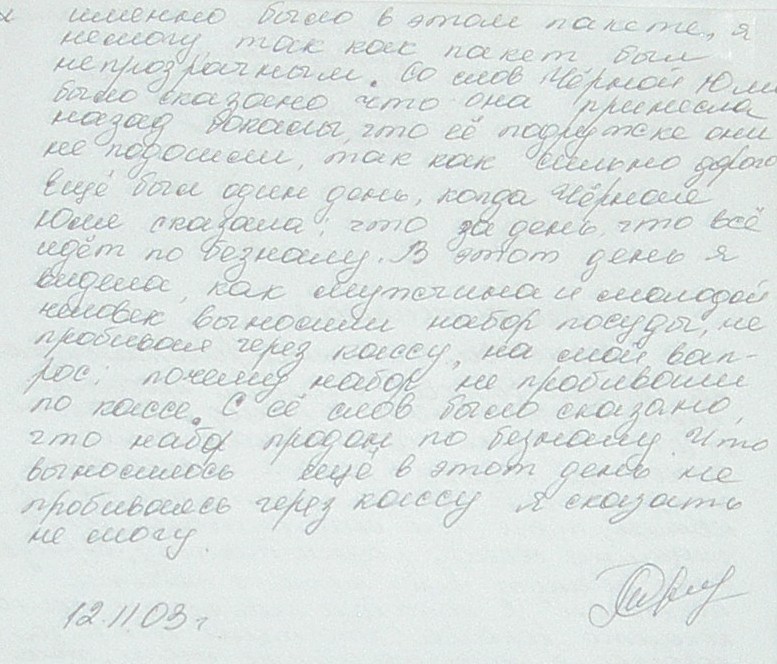 именно было в этом пакете, я
немогу, так как пакет был
непрозрачным. Со слов Чёрной Юли
было сказано что она принесла
назад бокалы, что её подружке они
не подошли, так как сильно дорого
ещё был один день, когда Чёрная
Юля сказала: что за день, что всё
идёт по безналу. В этот день я
видела, как мужчина и молодой
человек выносили набор посуды, не
пробивая через кассу, на мой вап-
рос: почему набор не пробивали
по кассе. С её слов было сказано,
что набор продан по безналу. Что
выносилось ещё в этот день не
пробиваясь через кассу я сказать
не могу
12.11.03 г